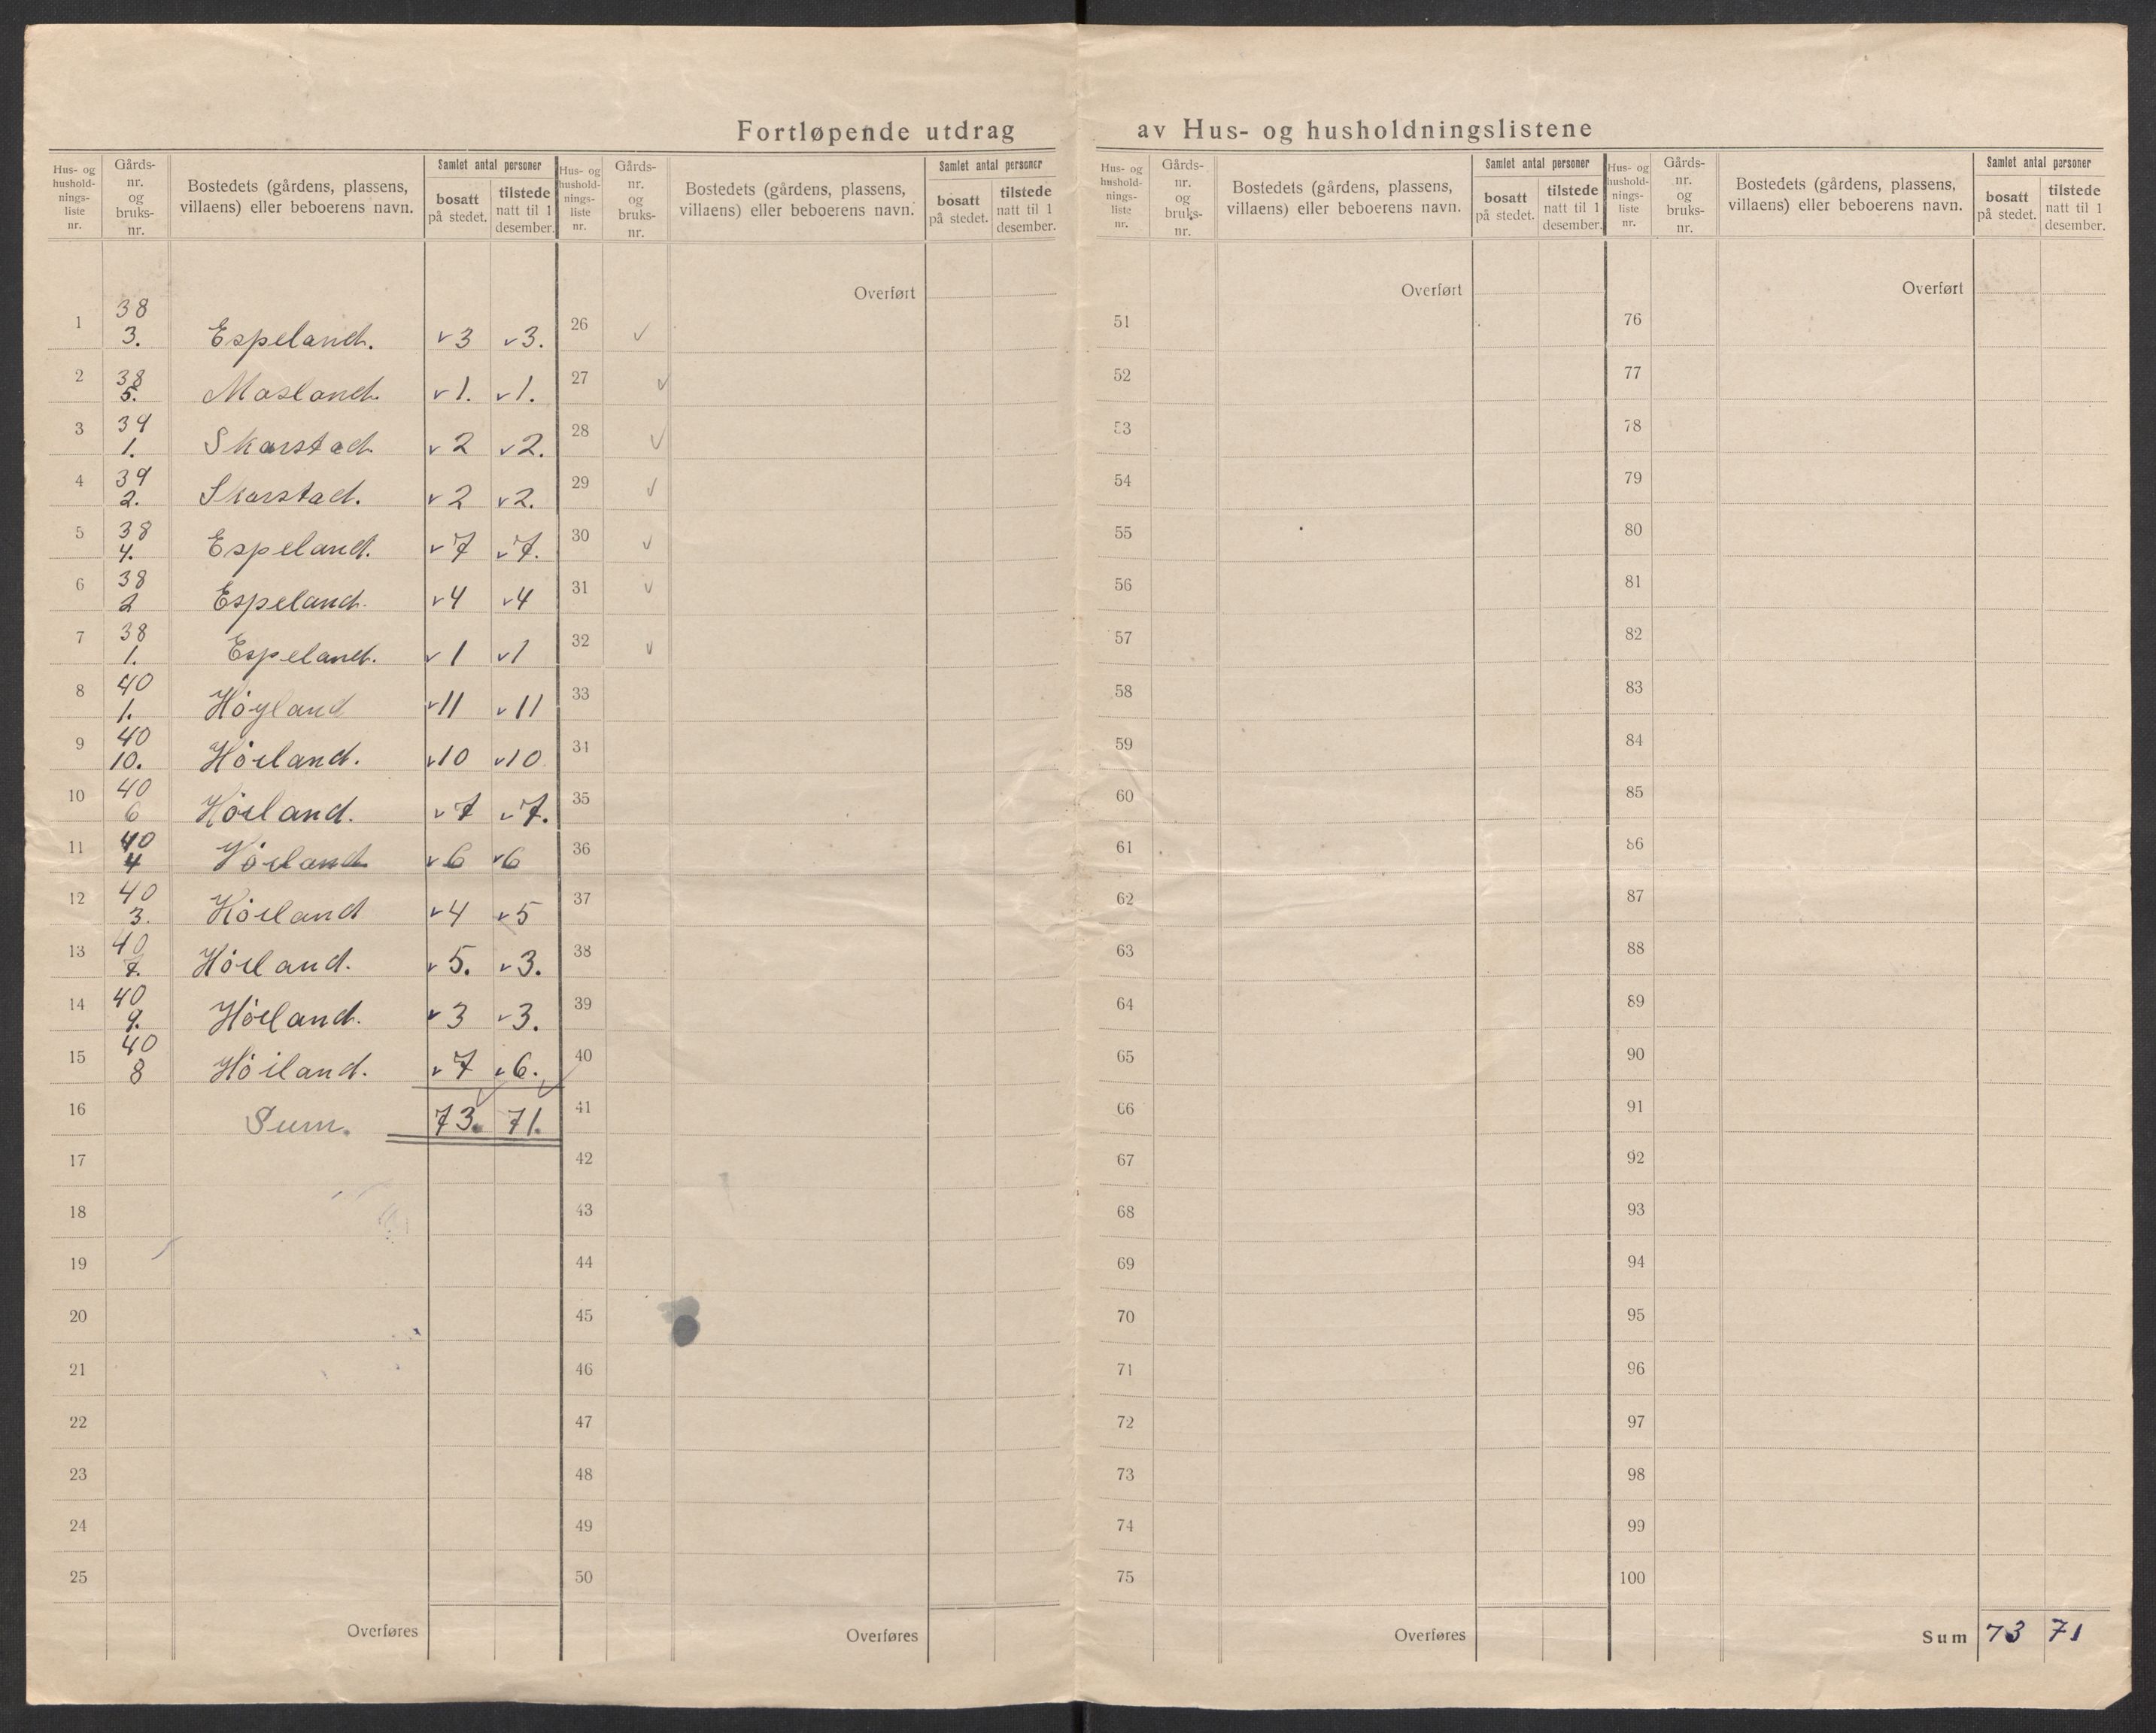 Fortløpende utdrag av Hus- og husholdningslistene
Hus- og hushold-nings-liste nr. Gårds-nr. og bruks-nr. Bostedets (gårdens, plassens, villaens) eller beboerens navn. Samlet antal personer bosatt på stedet. tilstede natt til 1 desember.
Hus- og hushold-nings-liste nr. Gårds-nr. og bruks-nr. Bostedets (gårdens, plassens, villaens) eller beboerens navn. Samlet antal personer bosatt på stedet. tilstede natt til 1 desember.
Hus- og hushold-nings-liste nr. Gårds-nr. og bruks-nr. Bostedets (gårdens, plassens, villaens) eller beboerens navn. Samlet antal personer bosatt på stedet. tilstede natt til 1 desember.
Hus- og hushold-nings-liste nr. Gårds-nr. og bruks-nr. Bostedets (gårdens, plassens, villaens) eller beboerens navn. Samlet antal personer bosatt på stedet. tilstede natt til 1 desember.
1 38 3. Espeland. v3 v3.
2 38 5. Mosland. v1. v1.
3 39 1. Skarstad. v2 v2.
4 39 2. Skarstad. v2 v2.
5 38 4. Espeland. v7 v7.
6 38 2 Espeland. v4 v4
7 38 1. Espeland. v1 v1
8 40 1. Höyland v11 v11
9 40 10. Höiland. v10 v10
10 40 6 Höiland. v7 v7.
11 40 4 Höiland v6 v6
12 40 3. Höiland v4 v5
13 40 7. Höiland. v5. v3.
14 40 9. Höiland. v3 v3.
15 40 8 Höiland. v7 v6.
16 Sum. 73. 71.
17
18
19
20
21
22
23
24
25
Overføres
Overført
26 v
27 v
28 v
29 v
30 v
31 v
32 v
33
34
35
36
37
38
39
40
41
42
43
44
45
46
47
48
49
50
Overføres
Overført
51
52
53
54
55
56
57
58
59
60
61
62
63
64
65
66
67
68
69
70
71
72
73
74
75
Overføres
Overført
76
77
78
79
80
81
82
83
84
85
86
87
88
89
90
91
92
93
94
95
96
97
98
99
100
Sum 73 71